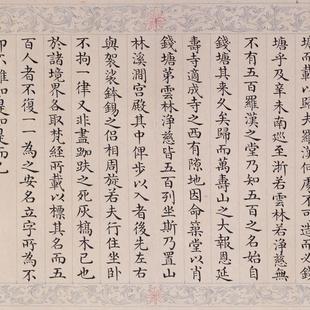 塘而載以歸夫羅漢何處不可造而必錢
塘乎及辛未南巡至浙若雲林若淨慈無
不有五百羅漢之堂乃知五百之名始自
錢塘其來久矣歸而萬壽山之大報恩延
壽寺適成寺之西有隙地因命築堂以肖
錢塘第雲林淨慈皆五百列坐斯乃置山
林溪澗宮殿其中俾步以入者後先左右
與袈裟鉢錫之侶相周旋若夫行住坐卧
不拘一律又非盡跏趺之死灰槁木已也
於諸境界各取梵經所載以標其名而五
百人者不復一一為之安名立字所為不
即不離如是如是而已